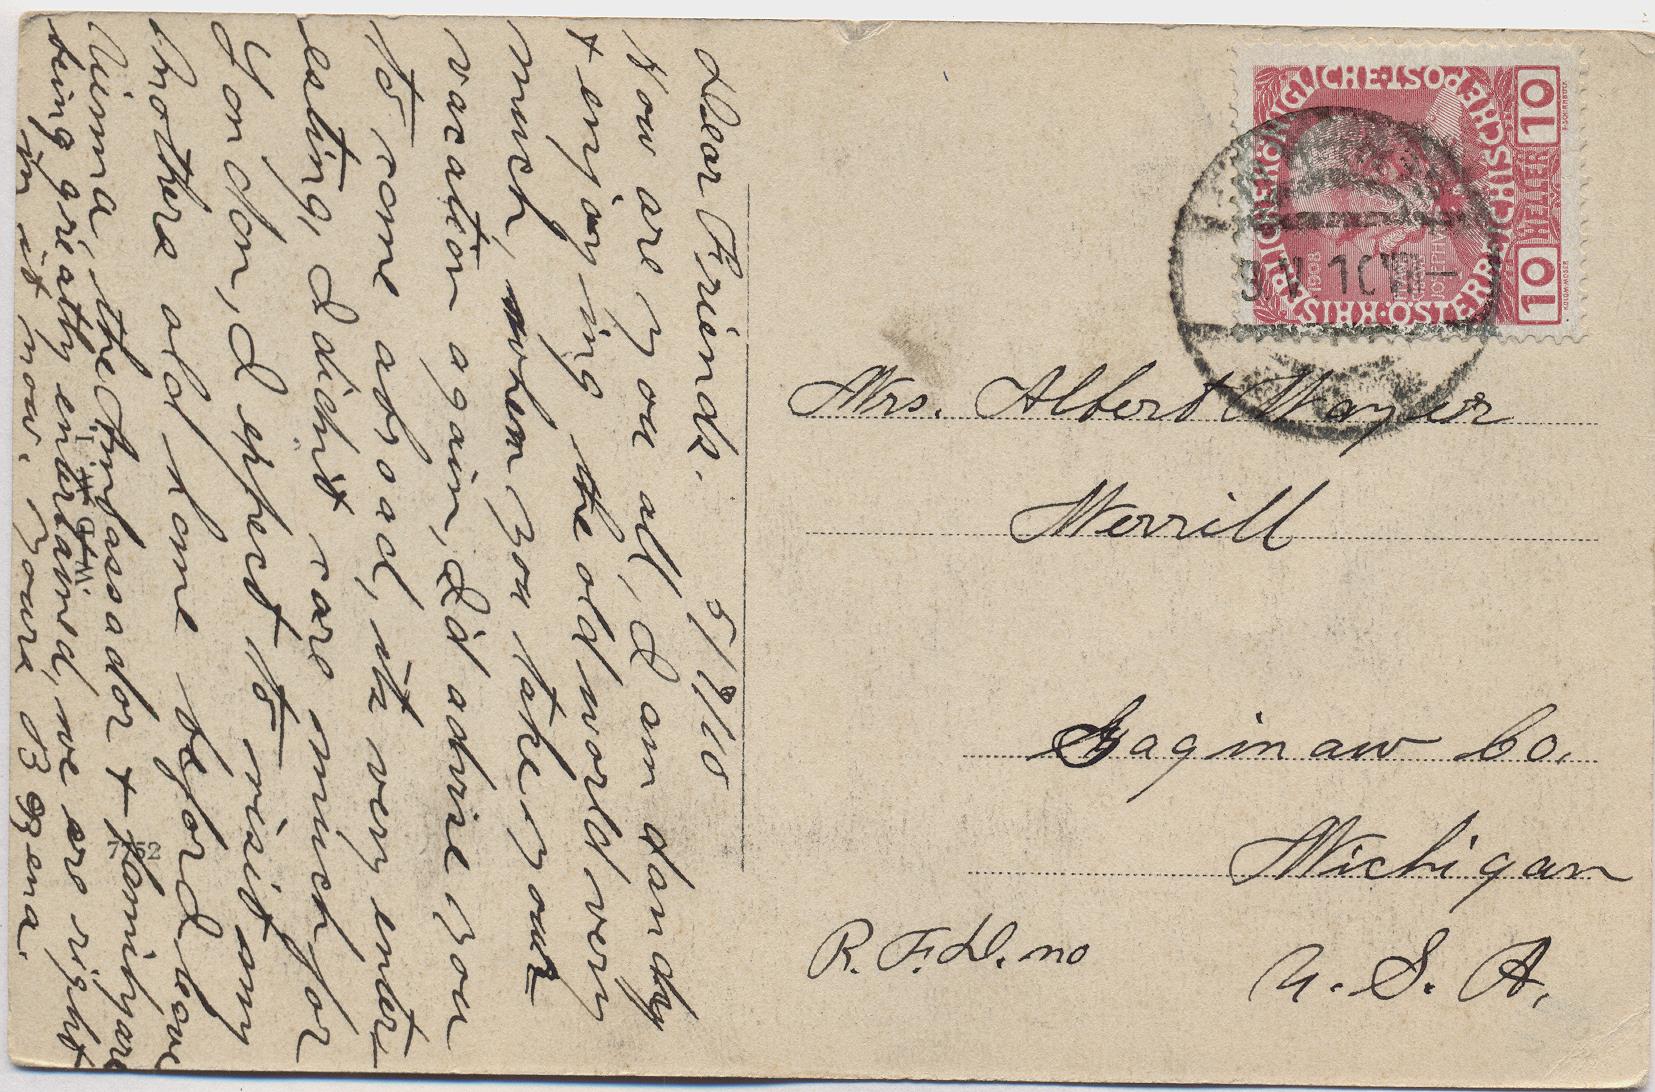 Dear Friends. 5/9/10
How are you all, I am dandy
+ enjoying the old world very
much, when you take your
vacation again, I'd advise you
to come abroad, its very enter-
esting, I didn't care much for
London, I expect to visit my
brothers old home before I leave
Vienna, the Ambassador + family are
being greatly entertained, we are right
in it now. Yours
7152
KAISERLICHE KÖNIGLICHE ÖSTERREICHISCHE POST
1908
10 HELLER 10
9 V 10
Mrs. Albert Wayer
Merrill
Saginaw Co.
Michigan
R.F.D. no U.S.A.